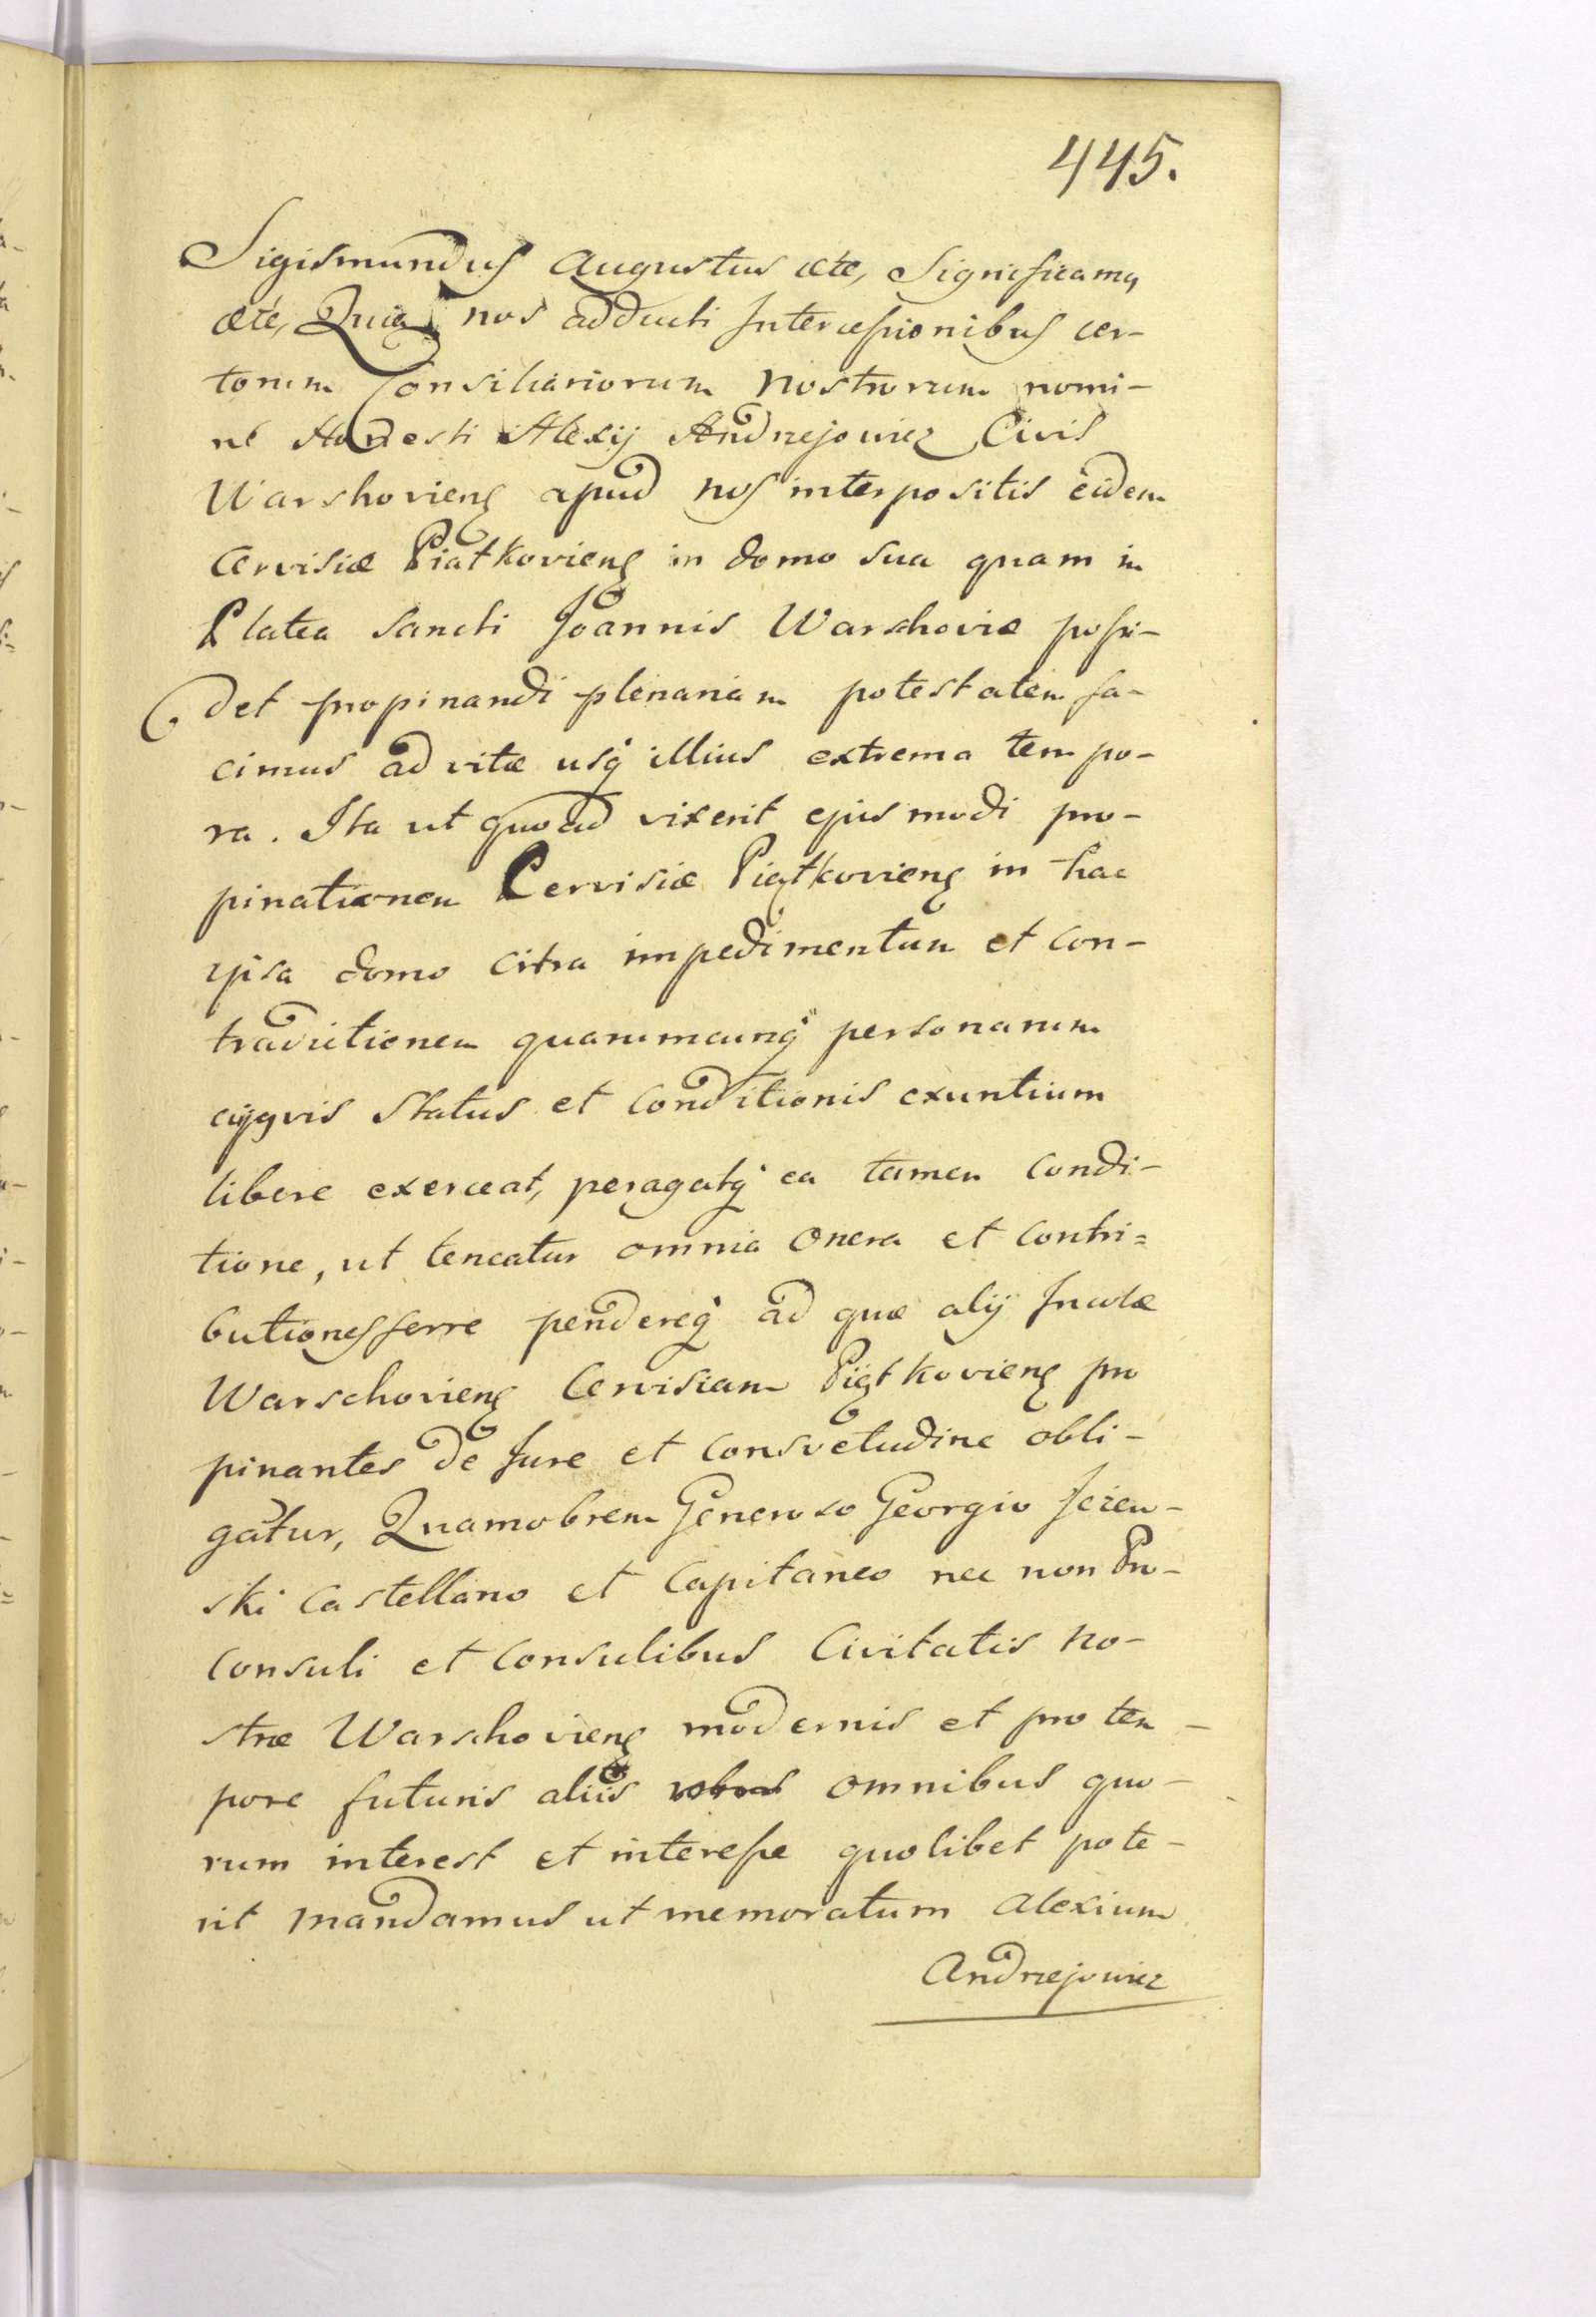 445.
Sigismundus Augustus etc, Significamq
etc, Quia nos adducti Intercessionibus cer-
torum Consiliariorum nostrorum nomi-
ne Honesti Alexij Andrzejowicz Civis
Warshovieng apud nos interpositis eidem
Cervisiæ Piatkovieng in domo sua quam in
Platea Sancti Joannis Warschoviæ possi-
det propinandi plenariam potestatem fa-
cimus ad vitæ usq illius extrema tempo-
ra. Ita ut quoad vixerit ejusmodi pro-
pinationem Cervisiæ Piątkovieng in hac
ipsa domo citra impedimentum et con-
tradictionem quarumcunq personarum
cujqvis Status et Conditionis exuntium
libere exerceat, peragatq ea tamen condi-
tione, ut teneatur omnia Onera et Contri=
butiones ferre pendereq ad quæ alij Incolæ
Warschovieng Cervisiam Piątkovieng pro
pinantes de Jure et consvetudine obli-
gatur, Quamobrem Generoso Georgio Jezew-
ski Castellano et Capitaneo nec non Pro-
consuli et Consulibus Civitatis no-
stræ Warschovieng modernis et pro tem-
pore futuris aliis omnibus quo-
rum interest et interesse quolibet pote-
rit mandamus ut memoratum Alexium
Andrzejowicz